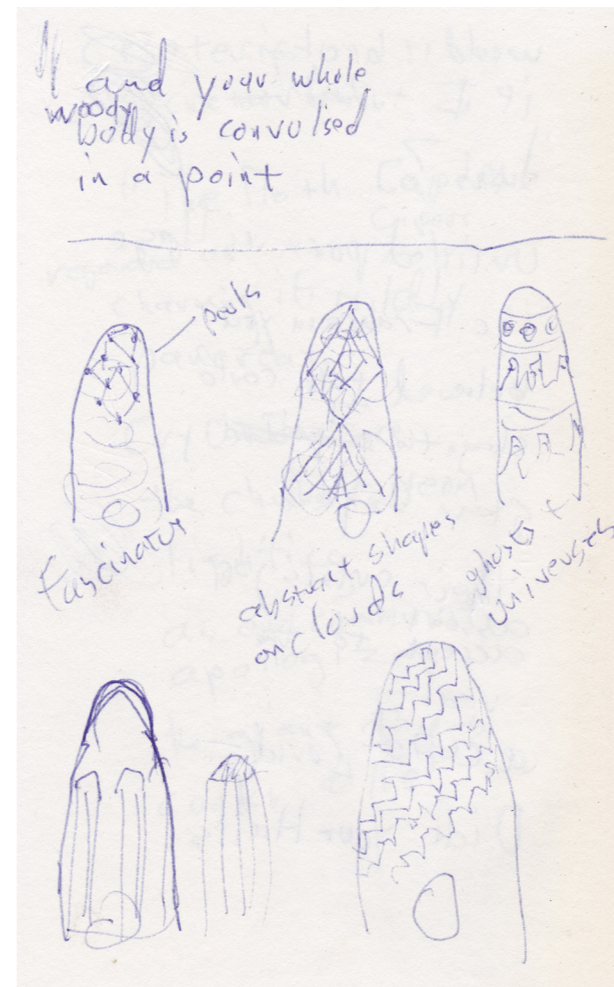 and your whole
woody
body is convulsed
in a point
peols
Fascinator
abstract shapes
on clouds
ghosts +
universes